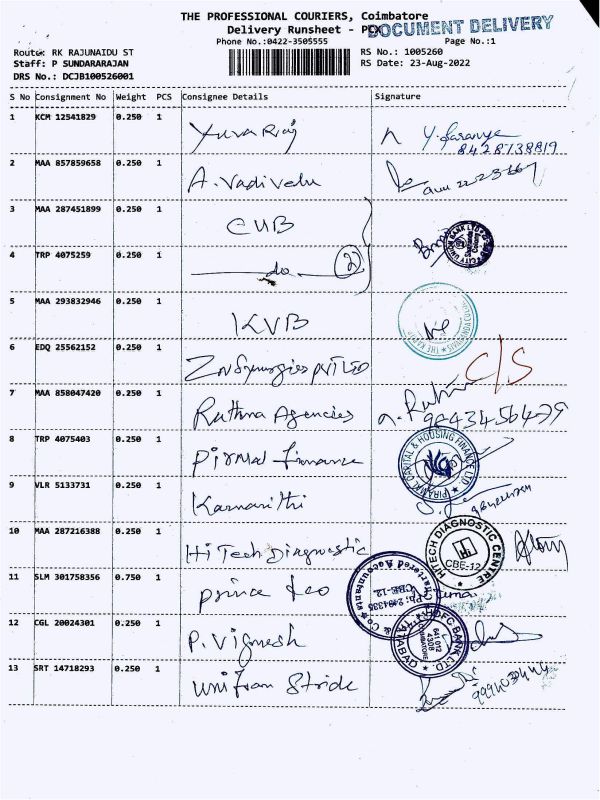 THE PROFESSIONAL COURIERS, Coimbatore
Delivery Runsheet - POX
DOCUMENT DELIVERY
Phone No.:0422-3505555 Page No.:1
Route: RK RAJUNAIDU ST RS No.: 1005260
Staff: P SUNDARARAJAN RS Date: 23-Aug-2022
DRS No.: DCJB100526001
S No Consignment No Weight PCS Consignee Details Signature
1 KCM 12541829 0.250 1 Yuva Raj Y. Saranya
8428738819
2 MAA 857859658 0.250 1 A. Vadivelu
3 MAA 287451899 0.250 1 CUB
4 TRP 4075259 0.250 1 do 2
CITY UNION BANK LTD
5 MAA 293832946 0.250 1 KVB
6 EDQ 25562152 0.250 1 ZN Synergies PVT LTD C/S
7 MAA 858047420 0.250 1 Rathna Agencies
8 TRP 4075403 0.250 1 Pirmal finance
PIRAMAL CAPITAL & HOUSING FINANCE LTD
9 VLR 5133731 0.250 1
10 MAA 287216388 0.250 1 Hi Tech Diagnostic
HITECH DIAGNOSTIC CENTRE
Hi
CBE-12
11 SLM 301758356 0.750 1 Prince
& Co Chartered Accountants
CBE-12.
12 CGL 20024301 0.250 1 P. Vignesh
HDFC BANK LTD
641 012
4308
COIMBATORE
13 SRT 14718293 0.250 1 Unifran Stride